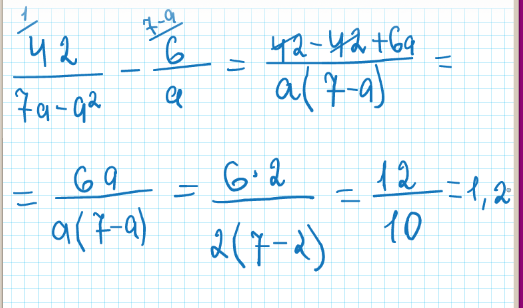 1/42/(7a-a²) - 7-a/6/a = (42-42+6a)/(a(7-a)) =
= 6a/(a(7-a)) = 6·2/(2(7-2)) = 12/10 = 1,2